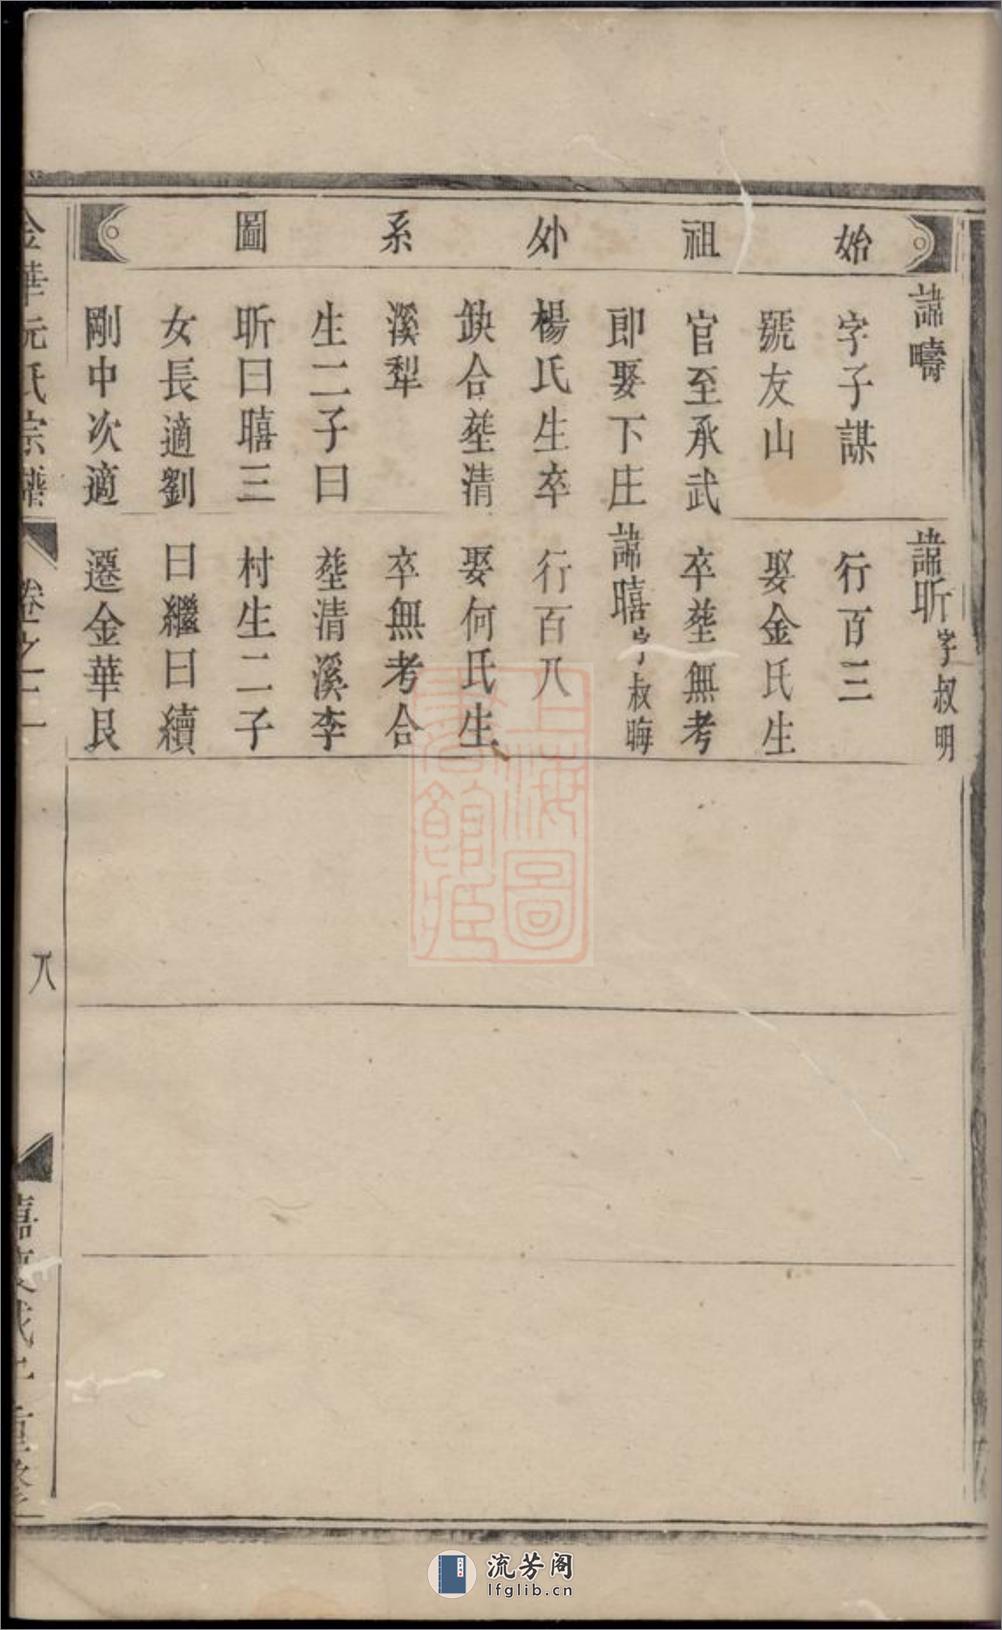 始祖外系圖
諱疇
字子謀
號友山
官至承武
即娶下庄
楊氏生卒
缺合塟清
溪犁
生二子曰
昕曰暿三
女長適劉
剛中次適
諱昕字叔明
行百三
娶金氏生
卒塟無考
諱暿字叔晦
行百八
娶何氏生
卒無考合
塟清溪李
村生二子
曰繼曰續
遷金華艮
金華阮氏宗譜
卷之二
八
重修
上海圖書館藏
流芳阁
lfglib.cn